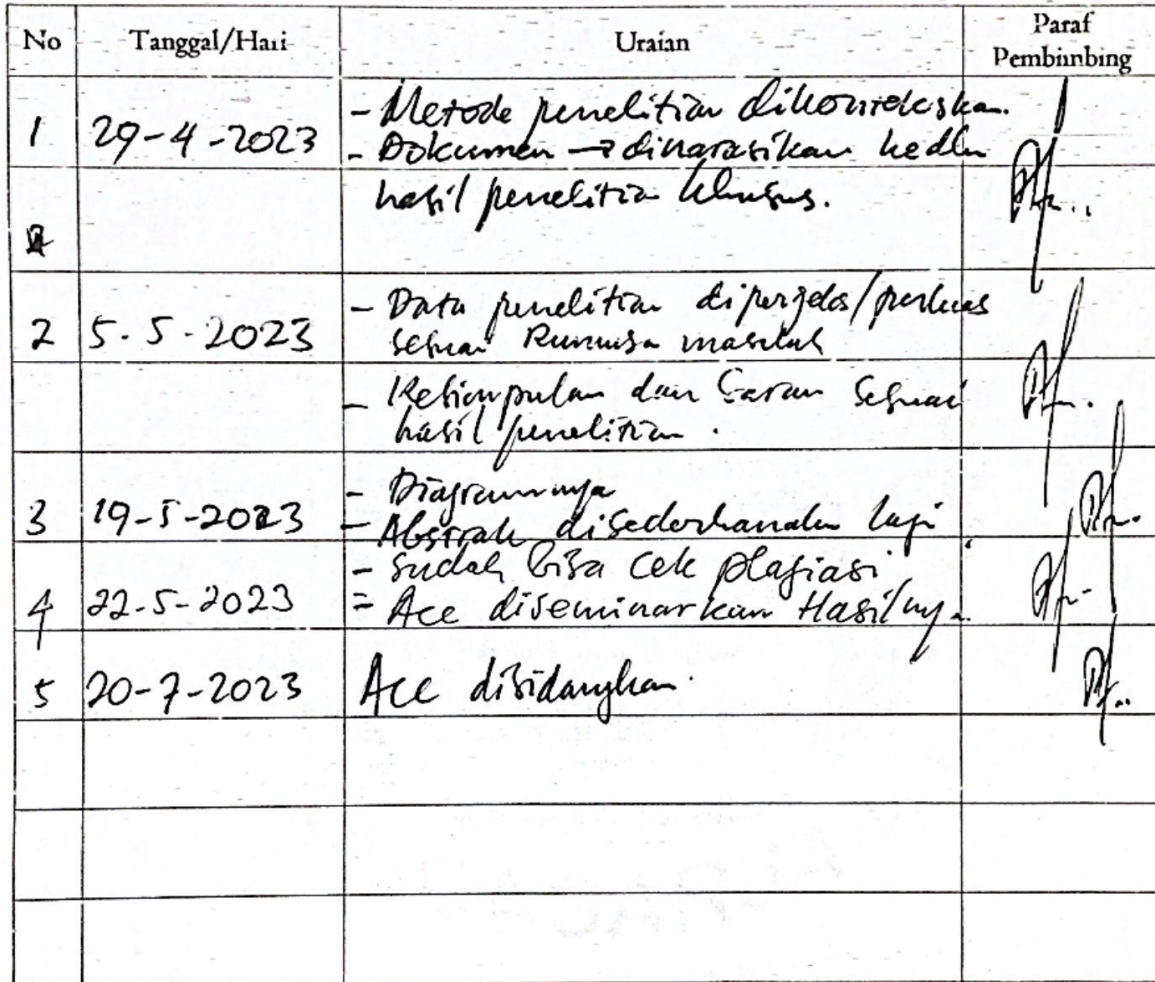 No Tanggal/Hari Uraian Paraf
Pembimbing
1 29-4-2023 - Metode penelitian dikonteksskan.
- Dokumen → dinarasikan kedlm
hasil penelitian khusus.
2 5-5-2023 - Data penelitian diperjelas/perluas
sesuai Rumusan masalah
- Kesimpulan dan Saran Sesuai
hasil penelitian.
3 19-5-2023 - Diagramnya
- Abstrak disederhanakan lagi
4 22-5-2023 - Sudah bisa cek plagiasi
= Acc diseminarkan Hasilnya.
5 20-7-2023 Acc disidangkan.